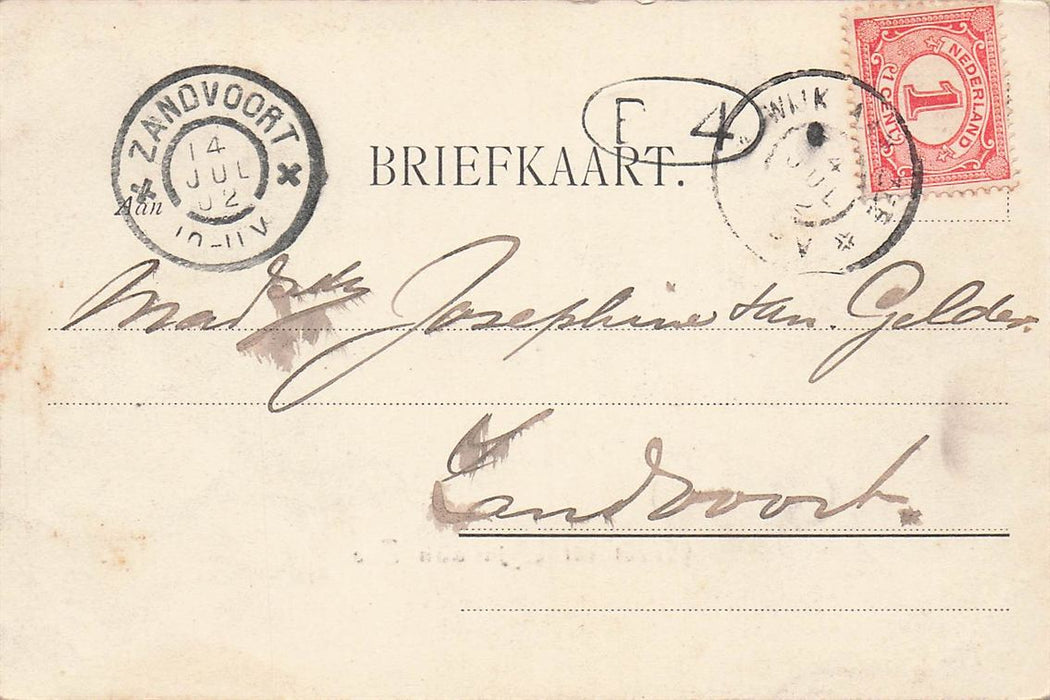 ZANDVOORT
14
JUL
02
10-11V
F 4
WIJK AAN ZEE
JUL
NEDERLAND
1
1 CENT
BRIEFKAART.
Aan
Josephine van Gelder.
Zandvoort.